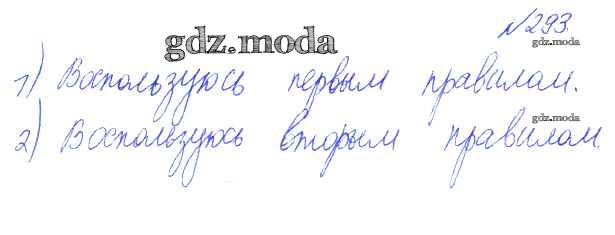 №293.
gdz.moda
gdz.moda
1) Воспользуюсь первым правилом.
gdz.moda
2) Воспользуюсь вторым правилом.